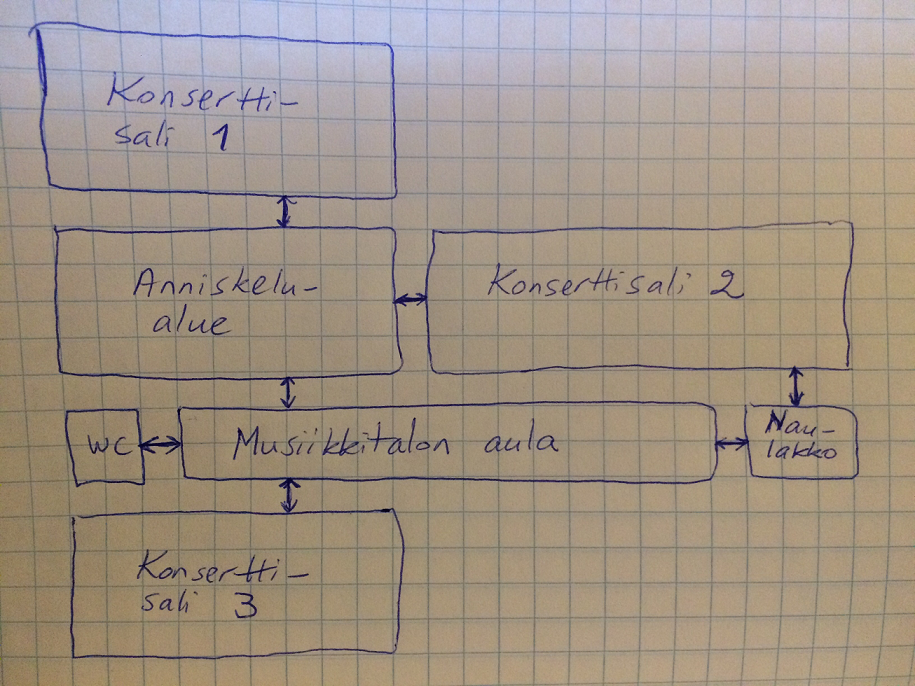 Konsertti-
sali 1
Anniskelu-
alue
Konserttisali 2
WC
Musiikkitalon aula
Nau-
lakko
Konsertti-
sali 3